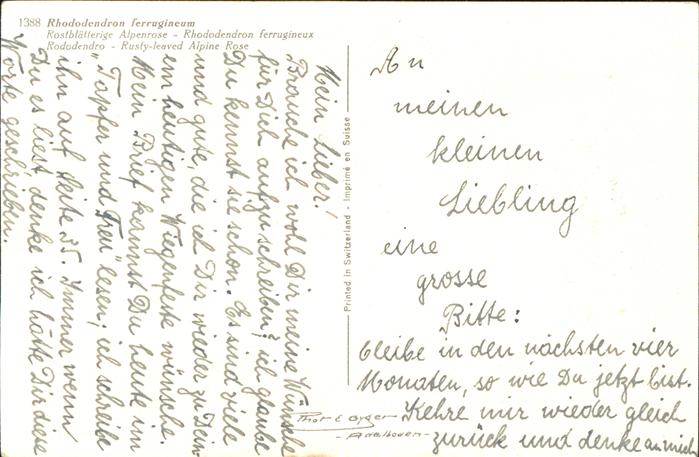 1388 Rhododendron ferrugineum
Rostblätterige Alpenrose - Rhododendron ferrugineux
Rododendro - Rusty-leaved Alpine Rose
Mein Lieber!
Brauche ich wohl Dir meine Wünsche
für Dich aufzuschreiben? ich glaube
Du kennst sie schon. Es sind viele
und gute, die ich Dir wieder zu Dein-
em heutigen Wiegenfeste wünsche.
Mein Brief kannst Du heute im
"Tapfer und Treu" lesen; ich schreibe
ihn auf Seite 35. Immer wenn
Du es liest denke ich hätte Dir diese
Worte geschrieben.
Printed in Switzerland - Imprimé en Suisse
An
meinen
kleinen
Liebling
eine
grosse
Bitte:
bleibe in den nächsten vier
Monaten, so wie Du jetzt bist.
Kehre mir wieder gleich
zurück und denke an mich.
Phot E Gyger
- Adelboden -